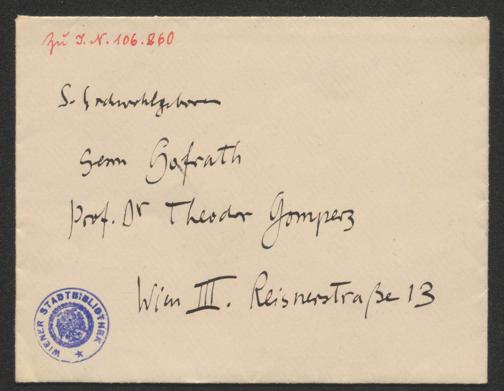 Zu I.N. 106.860
S. Hochwohlgeboren
Herrn Hofrath
Prof. Dr Theodor Gomperz
Wien III. Reisnerstraße 13
WIENER STADTBIBLIOTHEK